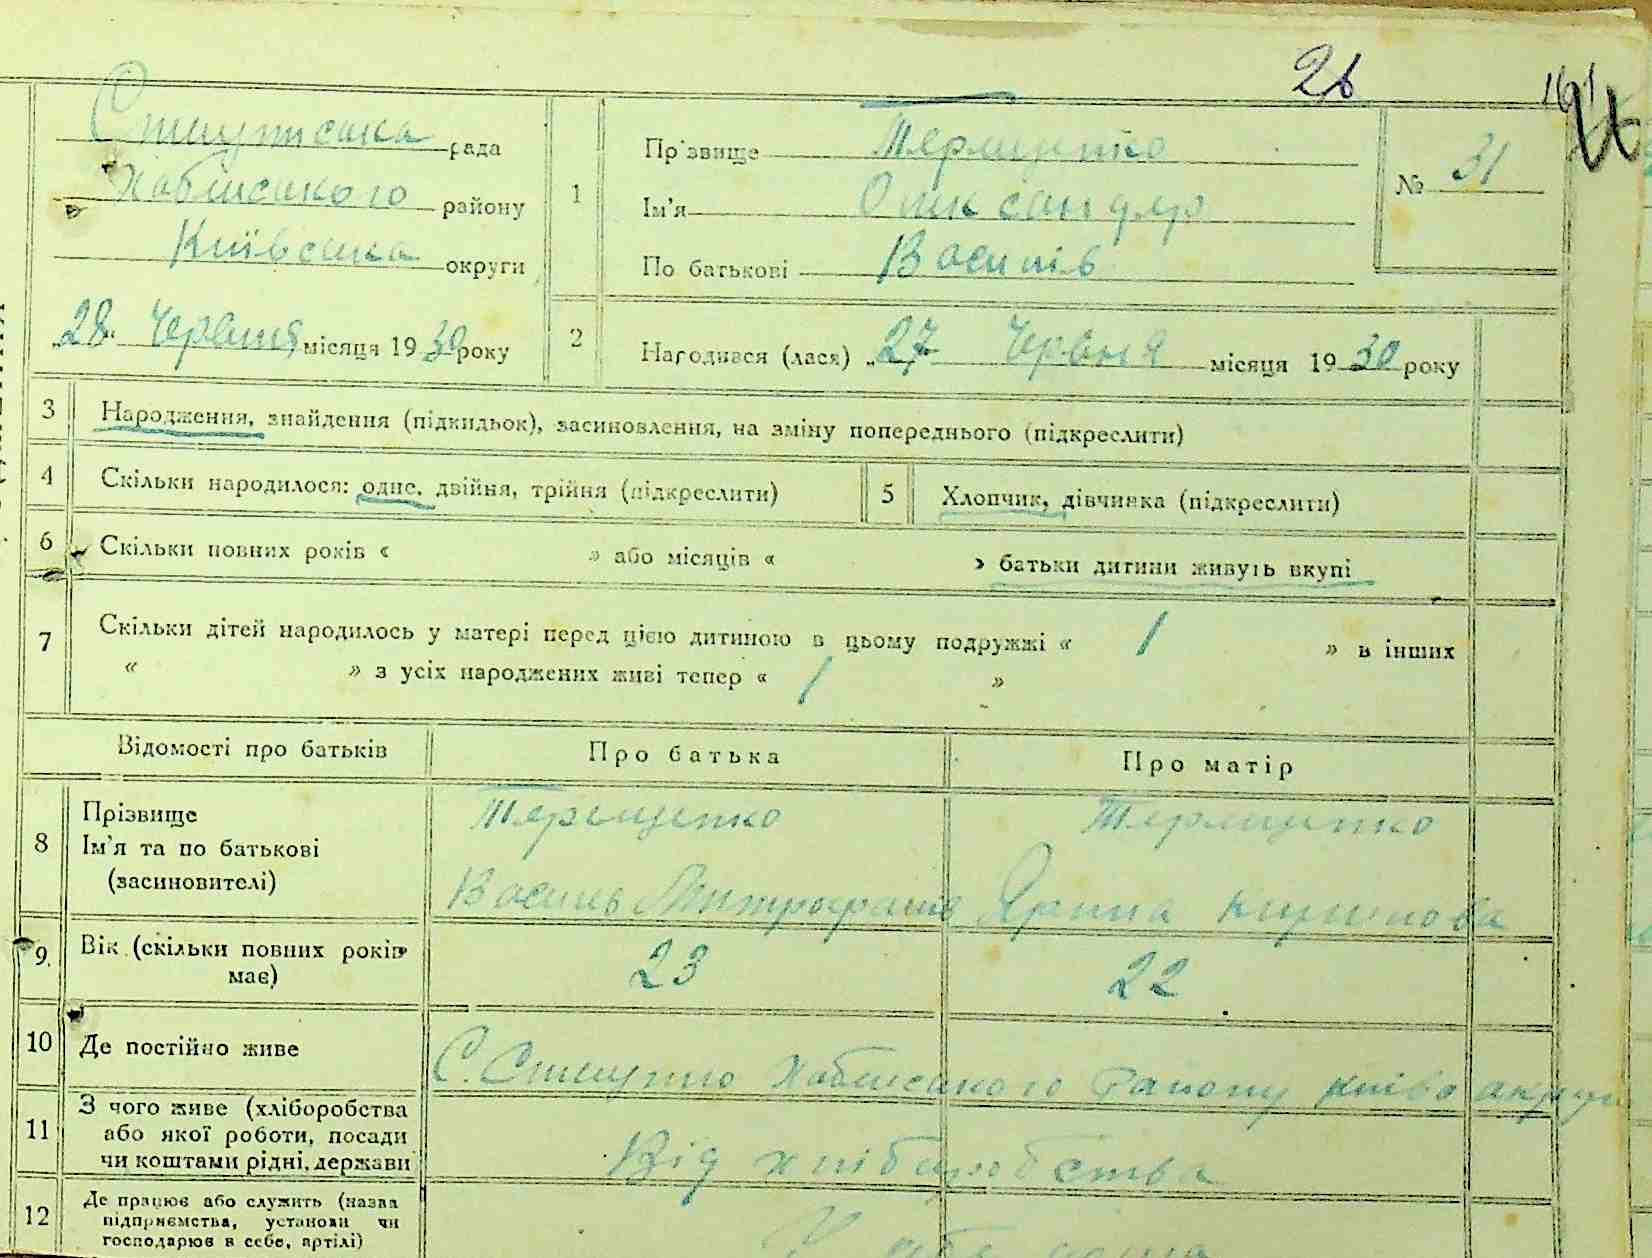 26
Спшутська рада
Хабенського району
Київська округи
„28“ Червня місяця 1930 року
1 Прізвище Терещенко
Ім'я Олександр
По батькові Василів
№ 31
2 Народився (лася) „27 Червня місяця 1930 року
3 Народження, знайдення (підкидьок), засиновлення, на зміну попереднього (підкреслити)
4 Скільки народилося: одне, двійня, трійня (підкреслити) 5 Хлопчик, дівчинка (підкреслити)
6 Скільки повних років « » або місяців « » батьки дитини живуть вкупі
7 Скільки дітей народилось у матері перед цією дитиною в цьому подружжі « 1 » в інших
« » з усіх народжених живі тепер « 1 »
Відомості про батьків Про батька Про матір
8 Прізвище Терещенко Терещенко
Ім'я та по батькові
(засиновителі) Василь Митрофанів Ярина
9. Вік (скільки повних років 23 22
має)
10 Де постійно живе С. Хабенського Району Київс округи
11 З чого живе (хліборобства
або якої роботи, посади
чи коштами рідні, держави Від хліборобства
12 Де працює або служить (назва
підприємства, установи чи
господарює в себе, артілі) У